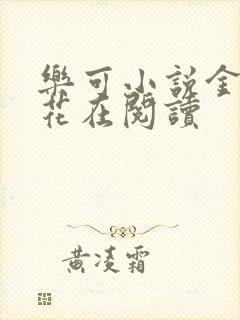 樂可小說金
花在閱讀
黃凌霜